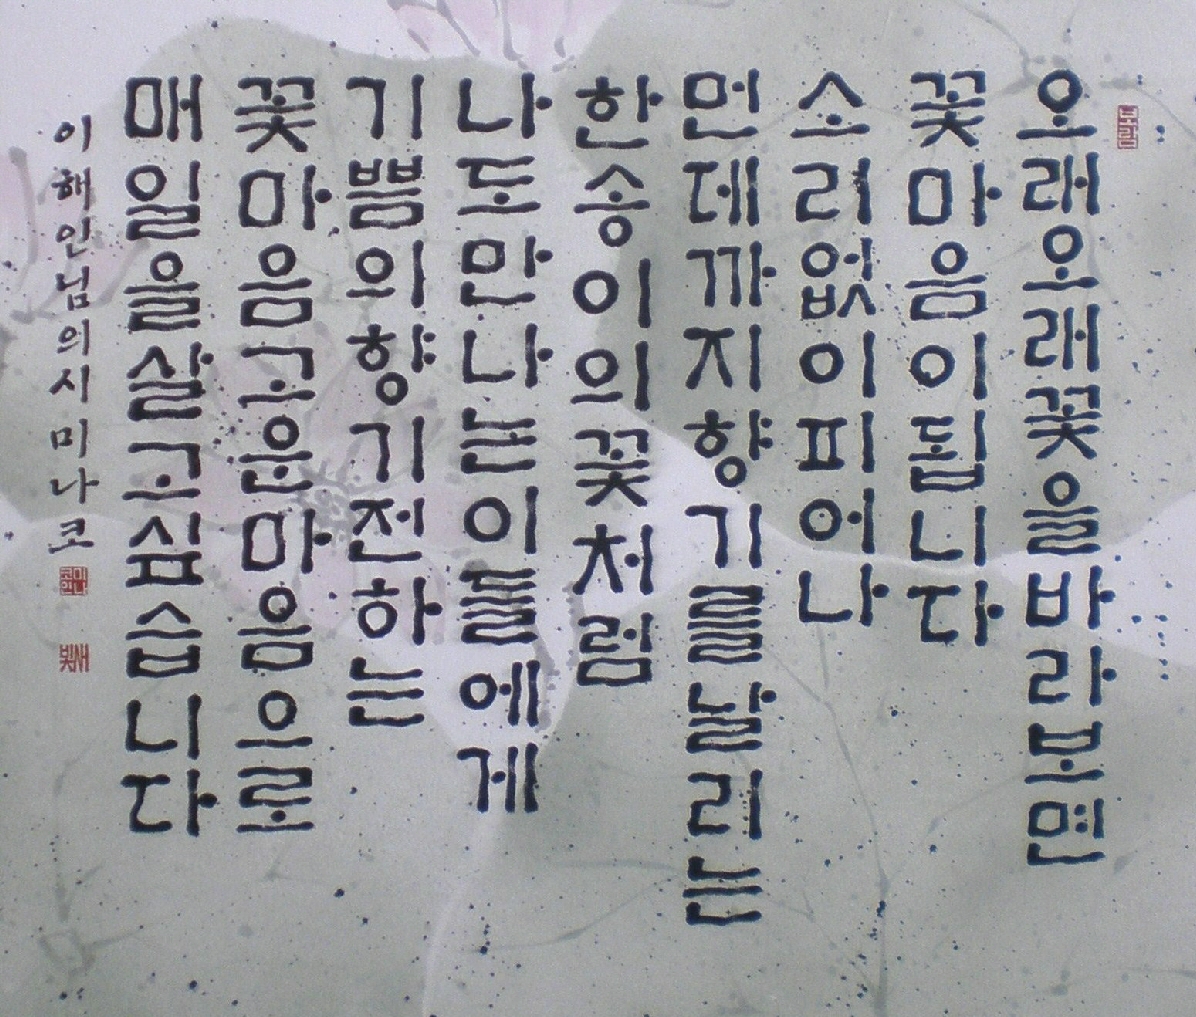 오래오래꽃을바라보면
꽃마음이됩니다
소리없이피어나
먼데까지향기를날리는
한송이의꽃처럼
나도만나는이들에게
기쁨의향기전하는
꽃마음고운마음으로
매일을살고싶습니다
이해인님의시미나코